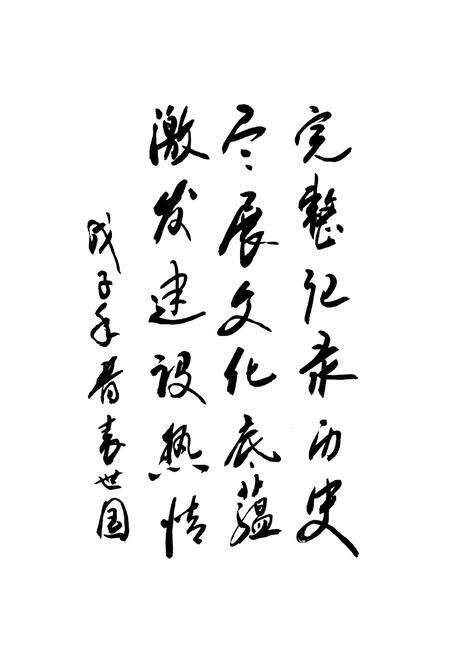 完整记录历史
尽展文化底蕴
激发建设热情
戊子年春袁世国